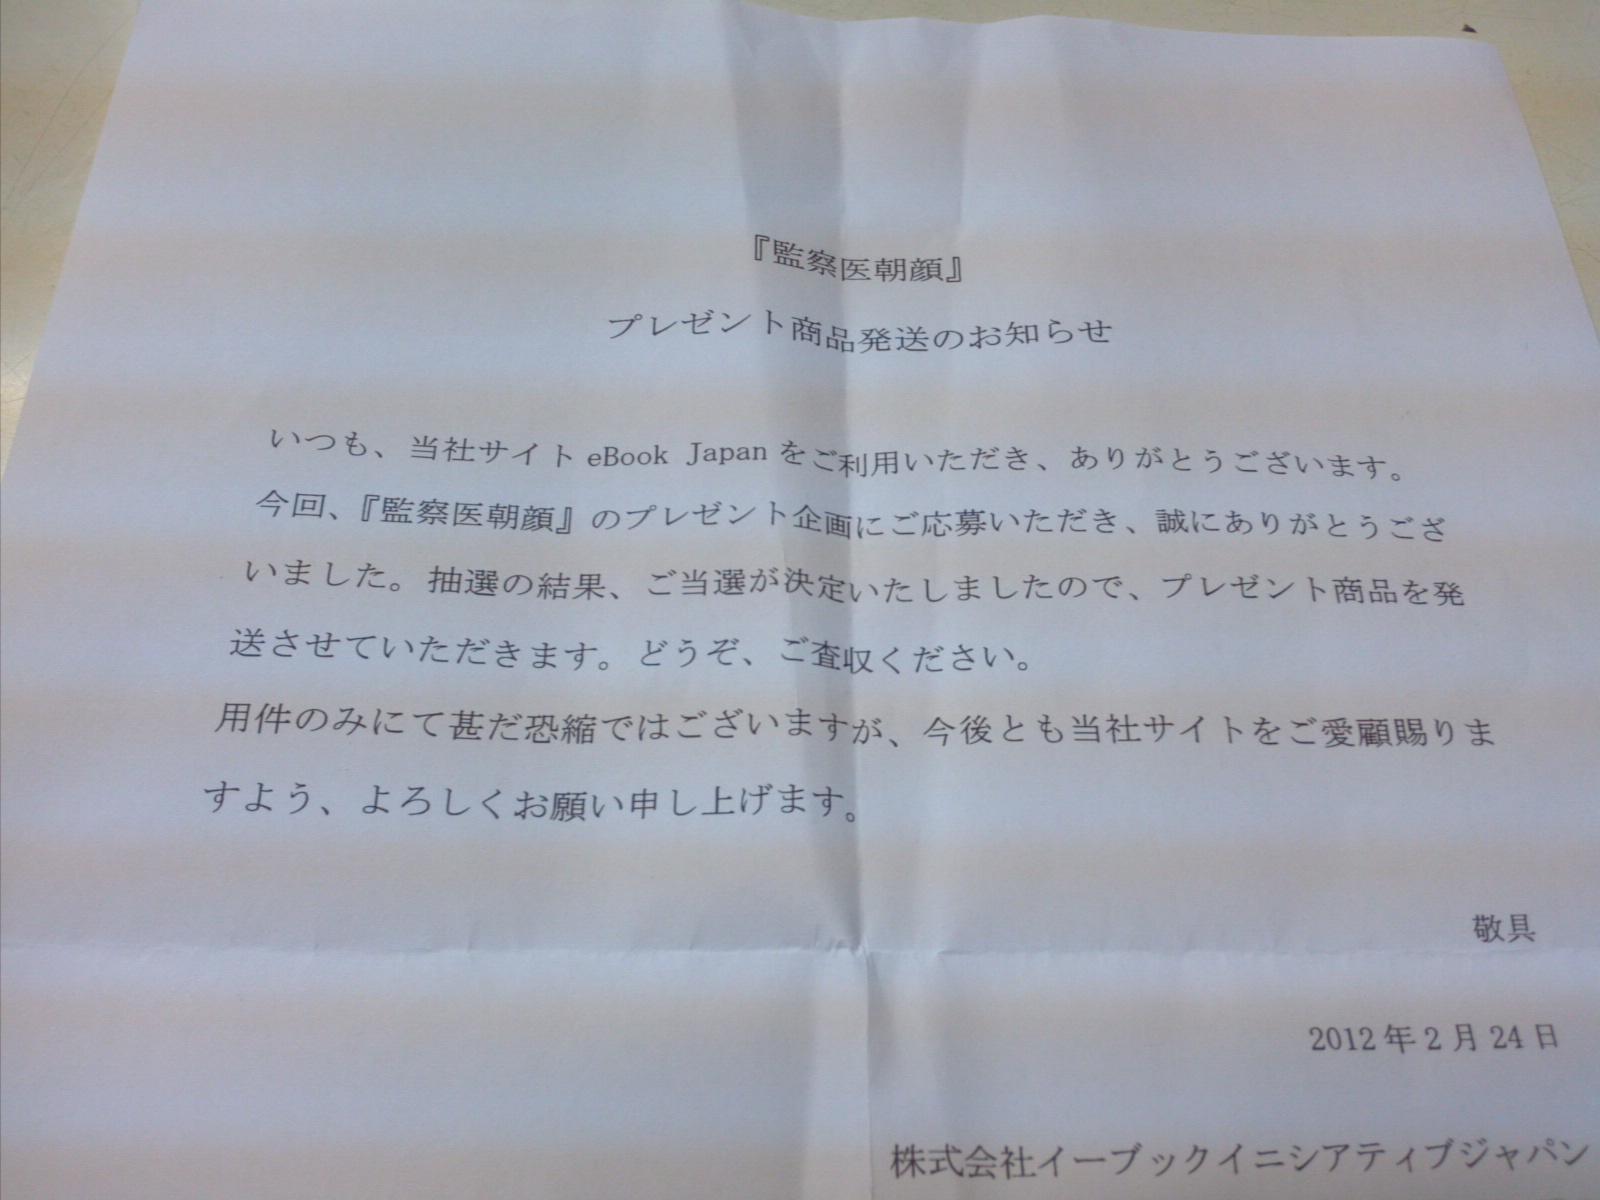 『監察医朝顔』
プレゼント商品発送のお知らせ
いつも、当社サイト eBook Japan をご利用いただき、ありがとうございます。
今回、『監察医朝顔』のプレゼント企画にご応募いただき、誠にありがとうござ
いました。抽選の結果、ご当選が決定いたしましたので、プレゼント商品を発
送させていただきます。どうぞ、ご査収ください。
用件のみにて甚だ恐縮ではございますが、今後とも当社サイトをご愛顧賜りま
すよう、よろしくお願い申し上げます。
敬具
2012 年 2 月 24 日
株式会社イーブックイニシアティブジャパン